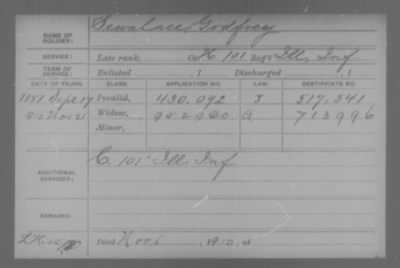 NAME OF SOLDIER: Godfrey
SERVICE: Late rank, Co H, 101 Reg't Ill. Inf
TERM OF SERVICE: Enlisted , 1 Discharged , 1
DATE OF FILING. CLASS. APPLICATION NO. LAW. CERTIFICATE NO.
Sept 17 Invalid, 430.092 J 517.341
Widow, 713996
Minor,
ADDITIONAL SERVICES: C. 101 Ill. Inf
REMARKS:
Died Nov 6, 1910, at